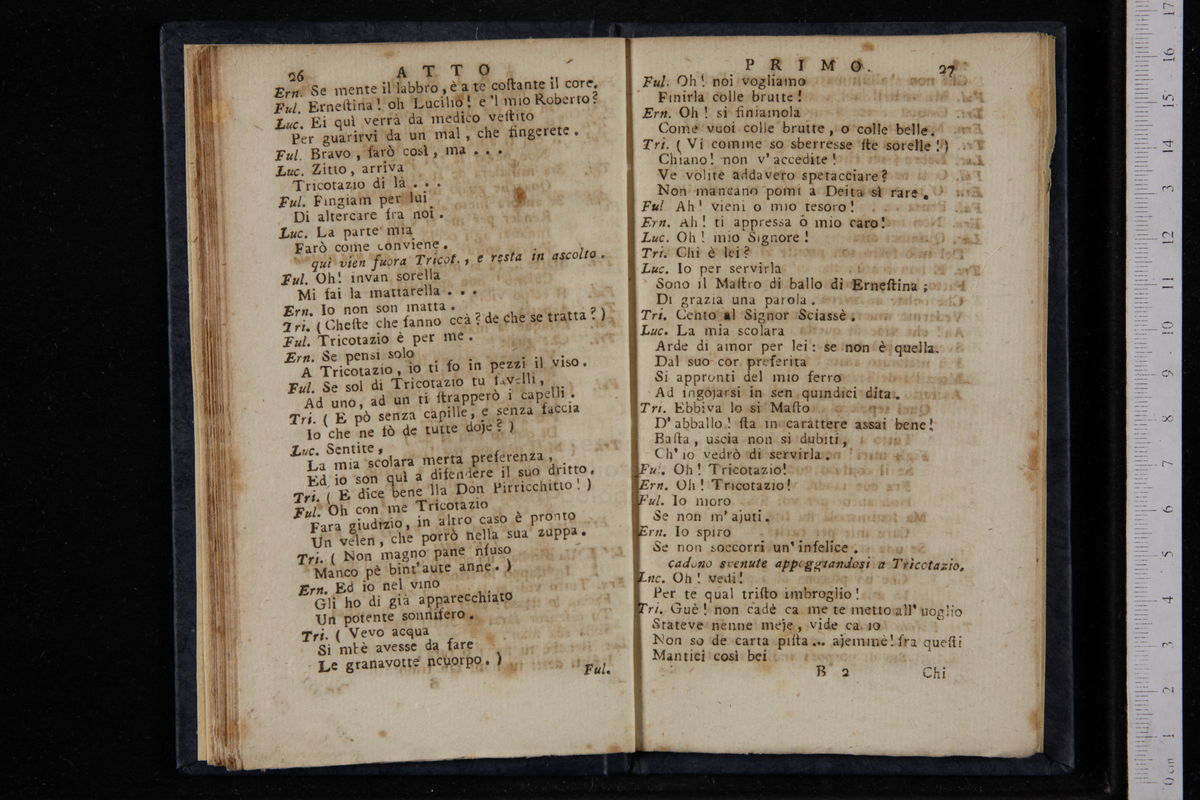 26 ATTO
Ern. Se mente il labbro, è a te coſtante il core.
Ful. Erneſtina! oh Lucilio! e 'l mio Roberto?
Luc. Ei quì verrà da medico veſtito
Per guarirvi da un mal, che fingerete.
Ful. Bravo, farò così, ma . . .
Luc. Zitto, arriva
Tricotazio di là . . .
Ful. Fingiam per lui
Di altercare fra noi.
Luc. La parte mia
Farò come conviene.
quì vien fuora Tricot., e resta in ascolto.
Ful. Oh! invan sorella
Mi fai la mattarella . . .
Ern. Io non son matta.
Tri. (Cheſte che fanno ccà? de che se tratta?)
Ful. Tricotazio è per me.
Ern. Se pensi solo
A Tricotazio, io ti fo in pezzi il viso.
Ful. Se sol di Tricotazio tu favelli,
Ad uno, ad un ti ſtrapperò i capelli.
Tri. ( E pò senza capille, e senza faccia
Io che ne fò de tutte doje? )
Luc. Sentite,
La mia scolara merta preferenza,
Ed io son quì a difendere il suo dritto.
Tri. ( E dice bene lla Don Pirricchitto! )
Ful. Oh con me Tricotazio
Fara giudizio, in altro caso è pronto
Un velen, che porrò nella sua zuppa.
Tri. ( Non magno pane nfuso
Manco pè bint'aute anne. )
Ern. Ed io nel vino
Gli ho di già apparecchiato
Un potente sonnifero.
Tri. ( Vevo acqua
Si mbè avesse da fare
Le granavotte ncuorpo. )
Ful.
PRIMO 27
Ful. Oh! noi vogliamo
Finirla colle brutte!
Ern. Oh! si finiamola
Come vuoi colle brutte, o colle belle.
Tri. ( Vi comme so sberresse ſte sorelle!)
Chiano! non v'accedite!
Ve volite addavero spetacciare?
Non mancano pomi a Deita sì rare.
Ful Ah! vieni o mio tesoro!
Ern. Ah! ti appressa ô mio caro!
Luc. Oh! mio Signore!
Tri. Chi è lei?
Luc. Io per servirla
Sono il Maſtro di ballo di Erneſtina;
Di grazia una parola.
Tri. Cento al Signor Sciassè.
Luc. La mia scolara
Arde di amor per lei: se non è quella
Dal suo cor preferita
Si appronti del mio ferro
Ad ingojarsi in sen quindici dita.
Tri. Ebbiva lo si Maſto
D'abballo! ſta in carattere assai bene!
Baſta, uscia non si dubiti,
Ch'io vedrò di servirla.
Ful. Oh! Tricotazio!
Ern. Oh! Tricotazio!
Ful. Io moro
Se non m'ajuti.
Ern. Io spiro
Se non soccorri un'infelice.
cadono svenute appoggiandosi a Tricotazio.
Luc. Oh! vedi!
Per te qual triſto imbroglio!
Tri. Guè! non cadè ca me te metto all'uoglio
Stateve nenne meje, vide ca io
Non so de carta piſta ... ajemmè! fra queſti
Mantici così bei
B 2 Chi